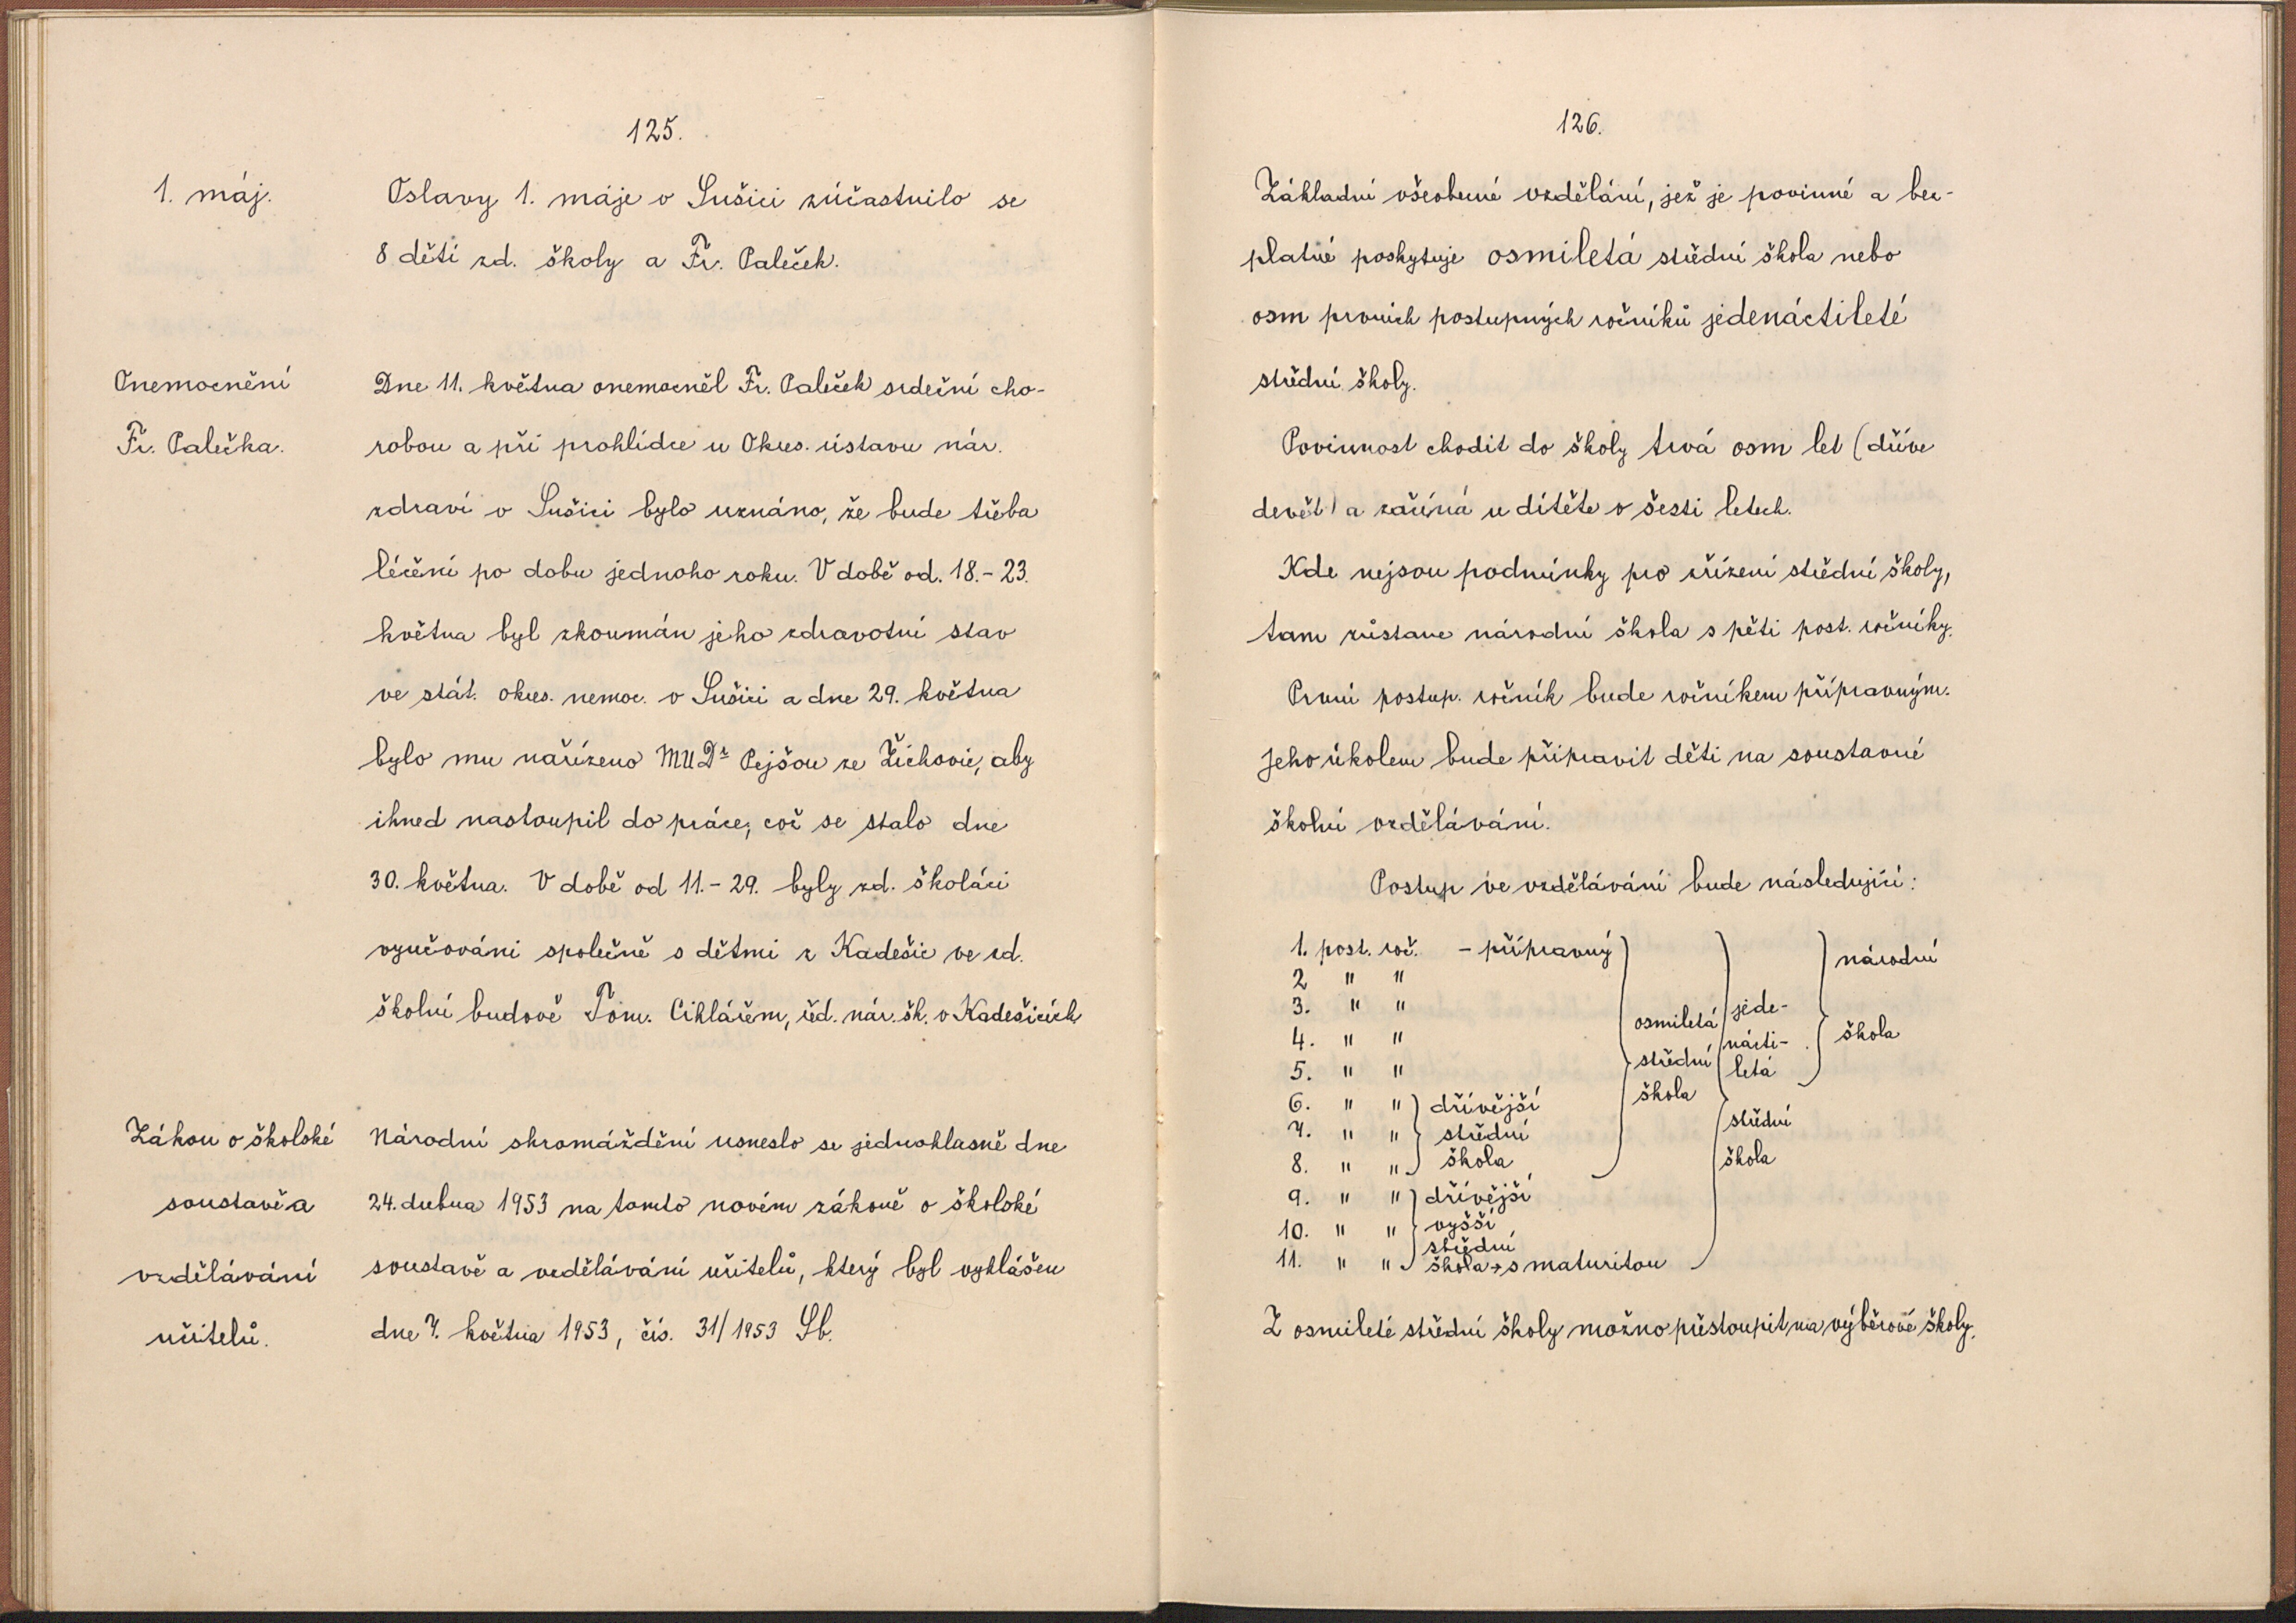 125.
1. máj.
Oslavy 1. máje v Sušici zúčastnilo se
8 dětí zd. školy a Fr. Paleček.
Onemocnění
Fr. Palečka.
Dne 11. května onemocněl Fr. Paleček srdeční cho-
robou a při prohlídce u Okres. ústavu nár.
zdraví v Sušici bylo uznáno, že bude třeba
léčení po dobu jednoho roku. V době od. 18.- 23.
května byl zkoumán jeho zdravotní stav
ve stát. okres. nemoc. v Sušici a dne 29. května
bylo mu nařízeno MUDr Pejšou ze Žichovic, aby
ihned nastoupil do práce, což se stalo dne
30. května. V době od 11.- 29. byly zd. školáci
vyučováni společně s dětmi z Kadešic ve zd.
školní budově Tom. Cihlářem, řed. nár. šk. v Kadešicích
Zákon o školské
soustavě a
vzdělávání
učitelů.
Národní shromáždění usneslo se jednohlasně dne
24. dubna 1953 na tomto novém zákoně o školské
soustavě a vzdělávání učitelů, který byl vyhlášen
dne 7. května 1953, čís. 31/1953 Sb.
126.
Základní všeobecné vzdělání, jež je povinné a bez-
platné poskytuje osmiletá střední škola nebo
osm prvních postupných ročníků jedenáctileté
střední školy.
Povinnost chodit do školy trvá osm let (dříve
devět) a začíná u dítěte v šesti letech.
Kde nejsou podmínky pro zřízení střední školy,
tam zůstane národní škola s pěti post. ročníky.
První postup. ročník bude ročníkem přípravným.
Jeho úkolem bude připravit děti na soustavné
školní vzdělávání.
Postup ve vzdělávání bude následující:
1. post. roč. - přípravný
2 " "
3. " "
4. " "
5. " "
6. " " dřívější
7. " " střední
8. " " škola
9. " " dřívější
10. " " vyšší
střední
11. " " škola → s maturitou
osmiletá
střední
škola
jede-
nácti-
letá
střední
škola
národní
škola
Z osmileté střední školy možno přestoupit na výběrové školy.